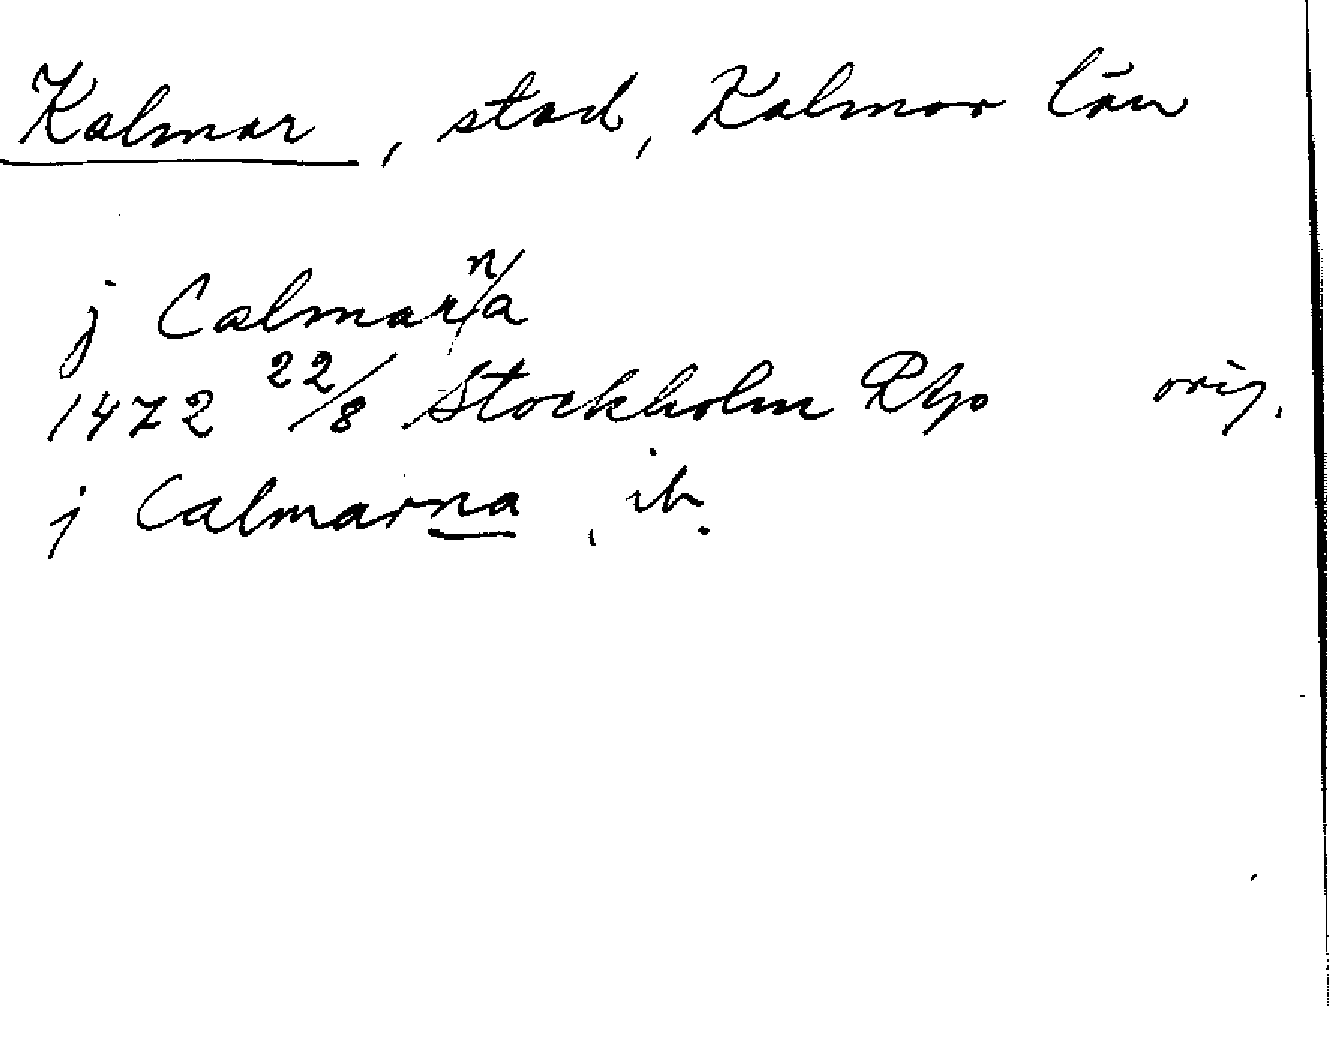 Kalmar, stad, Kalmar län
j Calmarna
1472 22/8 Stockholm RAp orig.
j Calmarna, ib.